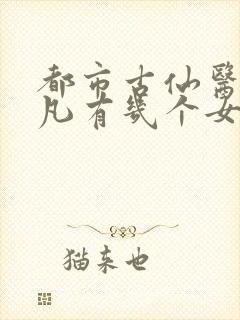 都市古仙醫
凡有幾个女
猫来也